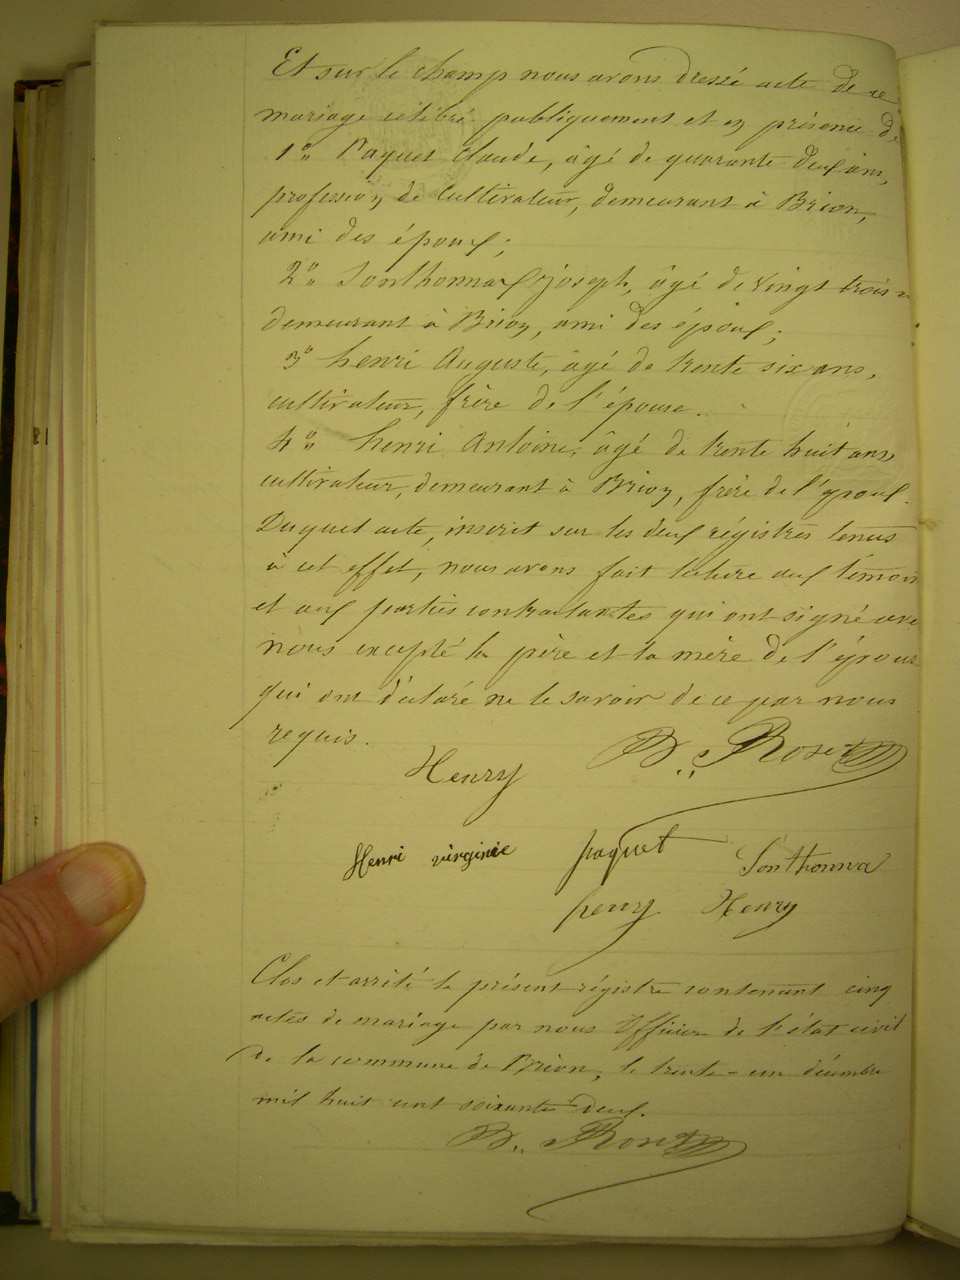 Et sur le champ nous avons dressé acte de ce
mariage célébré publiquement et en présence de
1° Paquet Claude, âgé de quarante deux ans,
profession de Cultivateur, demeurant à Brion,
ami des époux;
2° Sonthonnax joseph, âgé de vingt trois
demeurant à Brion, ami des époux;
3° henri Auguste, âgé de trente six ans,
cultivateur, frère de l'épouse.
4° henri Antoine, âgé de trente huit ans,
cultivateur, demeurant à Brion, frère de l'épouse.
Duquel acte, inscrit sur les deux régistres tenus
à cet effet, nous avons fait lecture aux témoins
et aux parties contractantes qui ont signé avec
nous excepté le père et la mère de l'épouse
qui ont déclaré ne le savoir de ce par nous
requis.
Henry B. Roset
Henri virginie paquet Sonthonna
henry Henry
Clos et arrêté le présent régistre contenant cinq
actes de mariage par nous Officier de l'état civil
de la commune de Brion, le trente-un décembre
mil huit cent soixante deux.
B. Roset